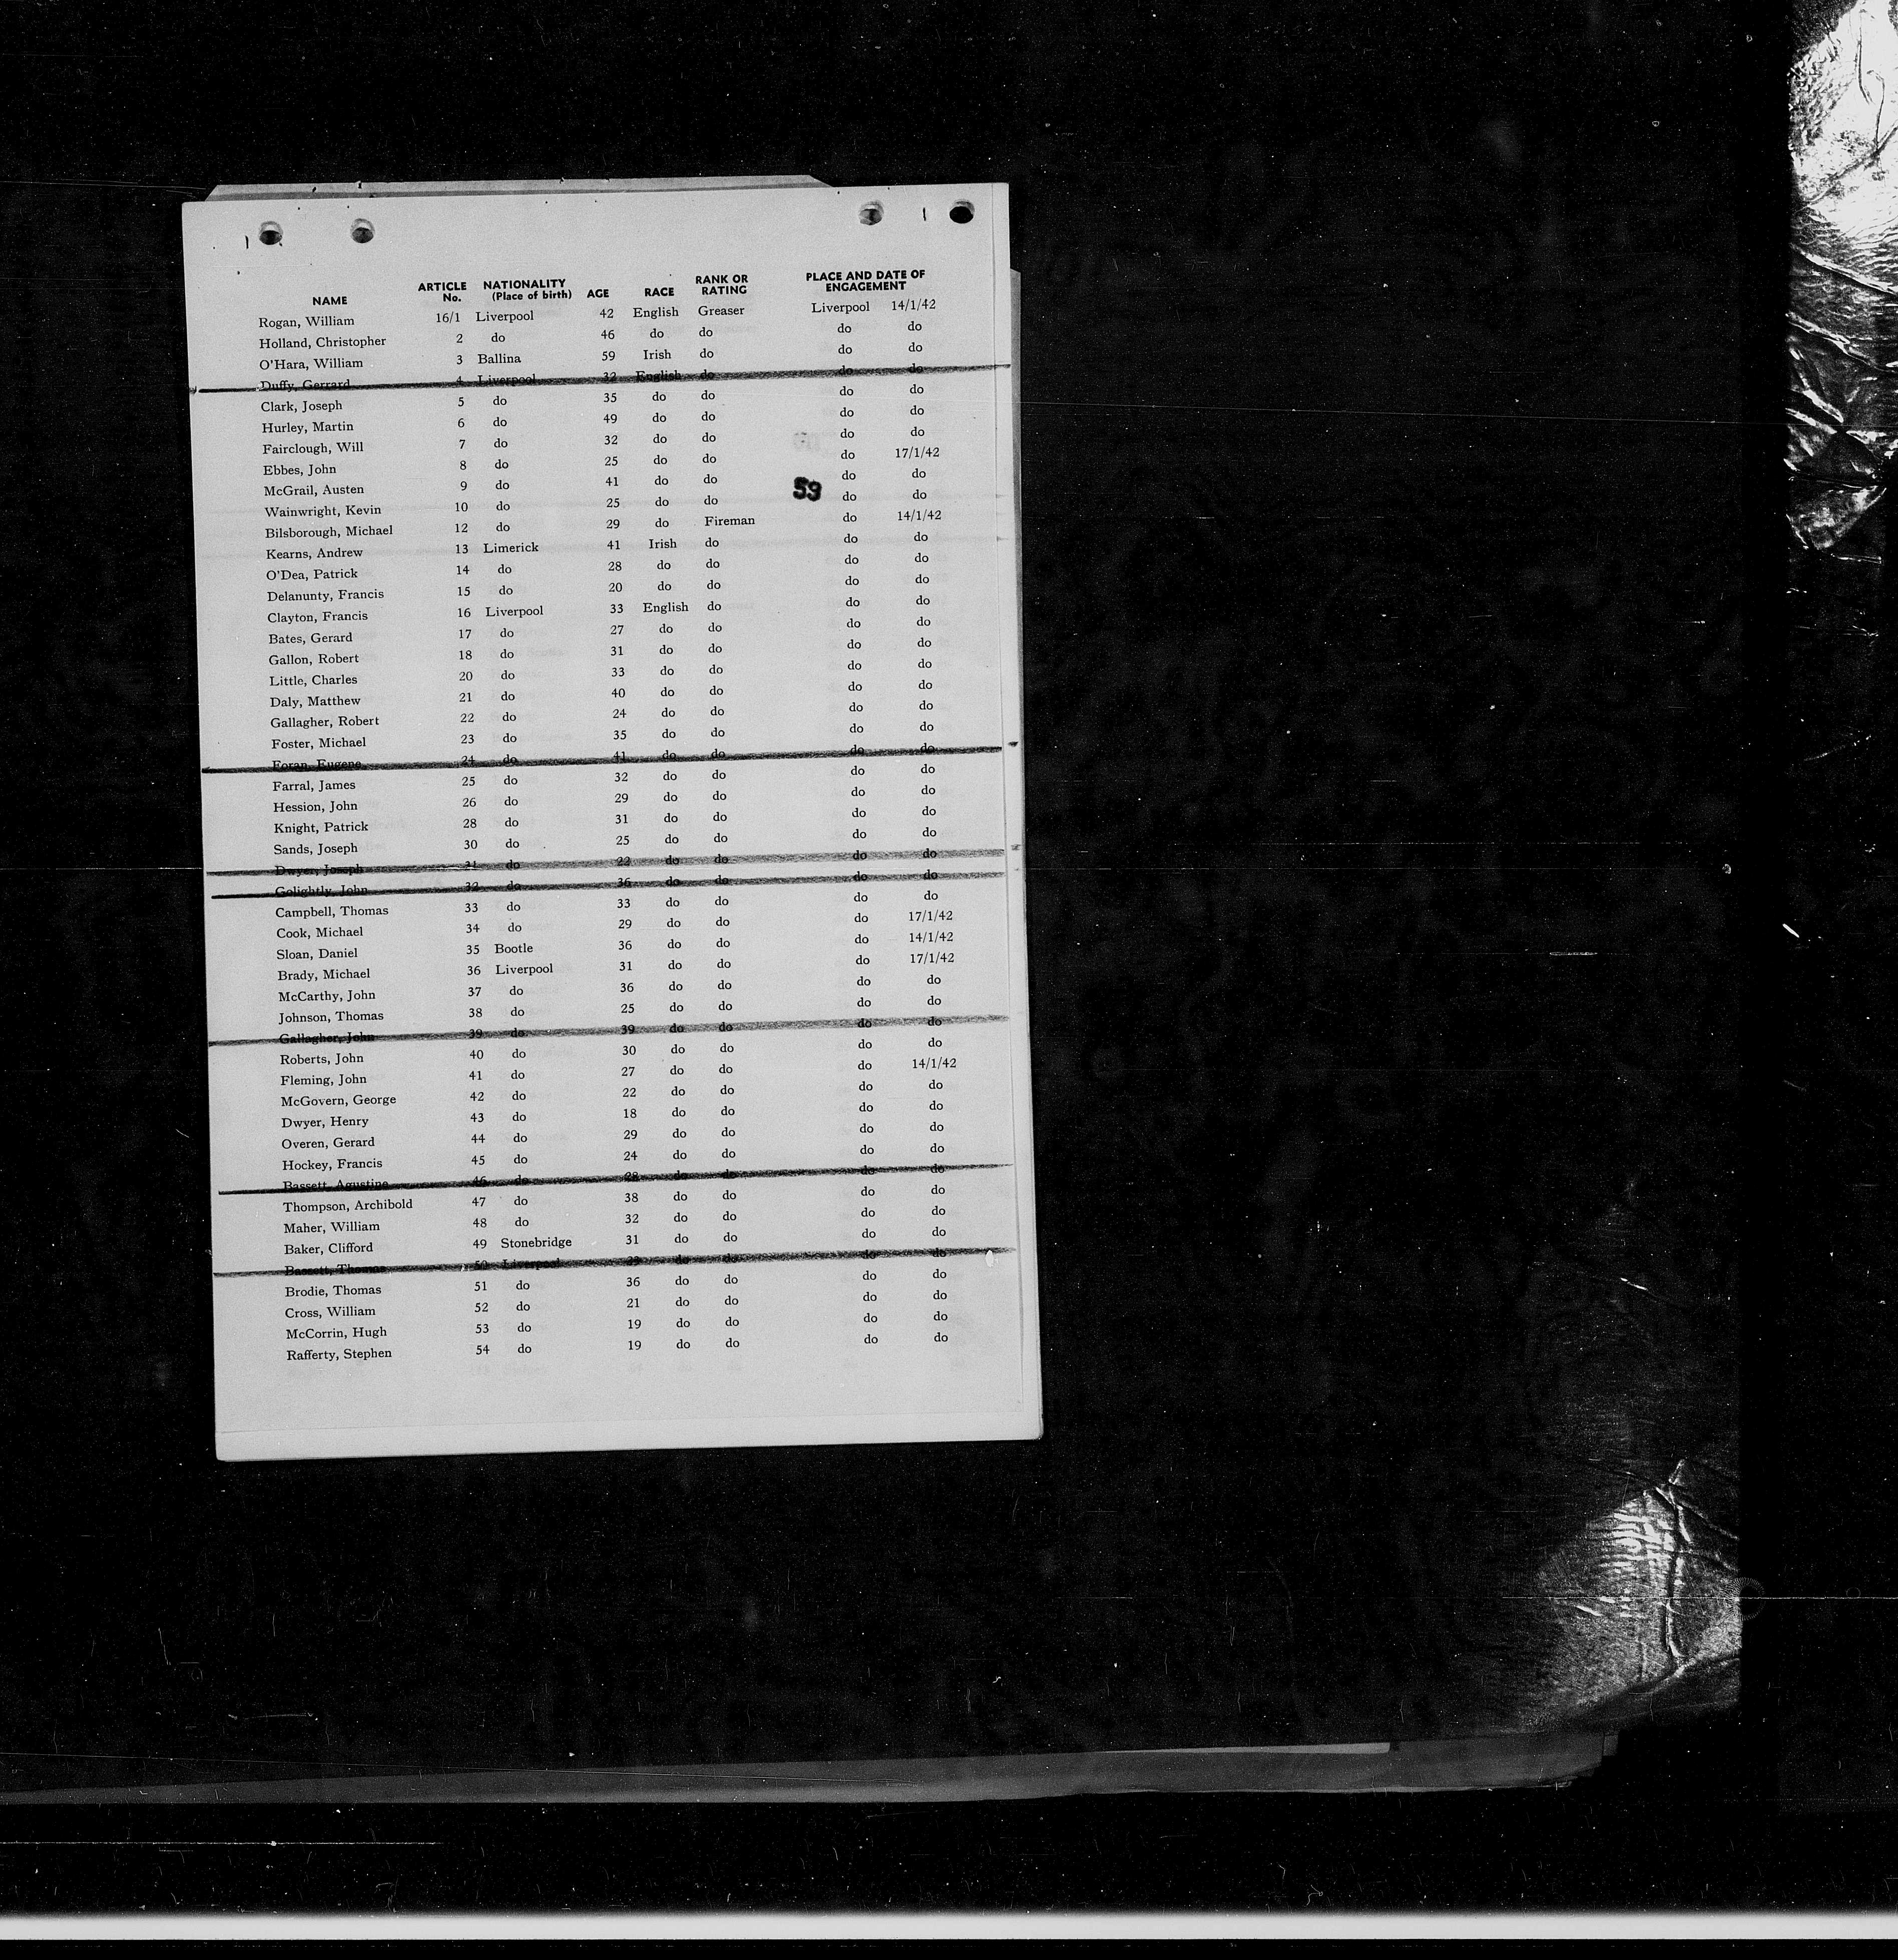 NAME ARTICLE No. NATIONALITY (Place of birth) AGE RACE RANK OR RATING PLACE AND DATE OF ENGAGEMENT
Rogan, William 16/1 Liverpool 42 English Greaser Liverpool 14/1/42
Holland, Christopher 2 do 46 do do do do
O'Hara, William 3 Ballina 59 Irish do do do
Duffy, Gerrard 4 Liverpool 32 English do do do
Clark, Joseph 5 do 35 do do do do
Hurley, Martin 6 do 49 do do do do
Fairclough, Will 7 do 32 do do do do
Ebbes, John 8 do 25 do do do 17/1/42
McGrail, Austen 9 do 41 do do do do
59
Wainwright, Kevin 10 do 25 do do do do
Bilsborough, Michael 12 do 29 do Fireman do 14/1/42
Kearns, Andrew 13 Limerick 41 Irish do do do
O'Dea, Patrick 14 do 28 do do do do
Delanunty, Francis 15 do 20 do do do do
Clayton, Francis 16 Liverpool 33 English do do do
Bates, Gerard 17 do 27 do do do do
Gallon, Robert 18 do 31 do do do do
Little, Charles 20 do 33 do do do do
Daly, Matthew 21 do 40 do do do do
Gallagher, Robert 22 do 24 do do do do
Foster, Michael 23 do 35 do do do do
Foran, Eugene 24 do 41 do do do do
Farral, James 25 do 32 do do do do
Hession, John 26 do 29 do do do do
Knight, Patrick 28 do 31 do do do do
Sands, Joseph 30 do 25 do do do do
Dwyer, Joseph 31 do 22 do do do do
Golightly, John 32 do 36 do do do do
Campbell, Thomas 33 do 33 do do do do
Cook, Michael 34 do 29 do do do 17/1/42
Sloan, Daniel 35 Bootle 36 do do do 14/1/42
Brady, Michael 36 Liverpool 31 do do do 17/1/42
McCarthy, John 37 do 36 do do do do
Johnson, Thomas 38 do 25 do do do do
Gallagher, John 39 do 39 do do do do
Roberts, John 40 do 30 do do do do
Fleming, John 41 do 27 do do do 14/1/42
McGovern, George 42 do 22 do do do do
Dwyer, Henry 43 do 18 do do do do
Overen, Gerard 44 do 29 do do do do
Hockey, Francis 45 do 24 do do do do
Bassett, Agustine 46 do 28 do do do do
Thompson, Archibold 47 do 38 do do do do
Maher, William 48 do 32 do do do do
Baker, Clifford 49 Stonebridge 31 do do do do
Bassett, Thomas 50 Liverpool do do do do
Brodie, Thomas 51 do 36 do do do do
Cross, William 52 do 21 do do do do
McCorrin, Hugh 53 do 19 do do do do
Rafferty, Stephen 54 do 19 do do do do